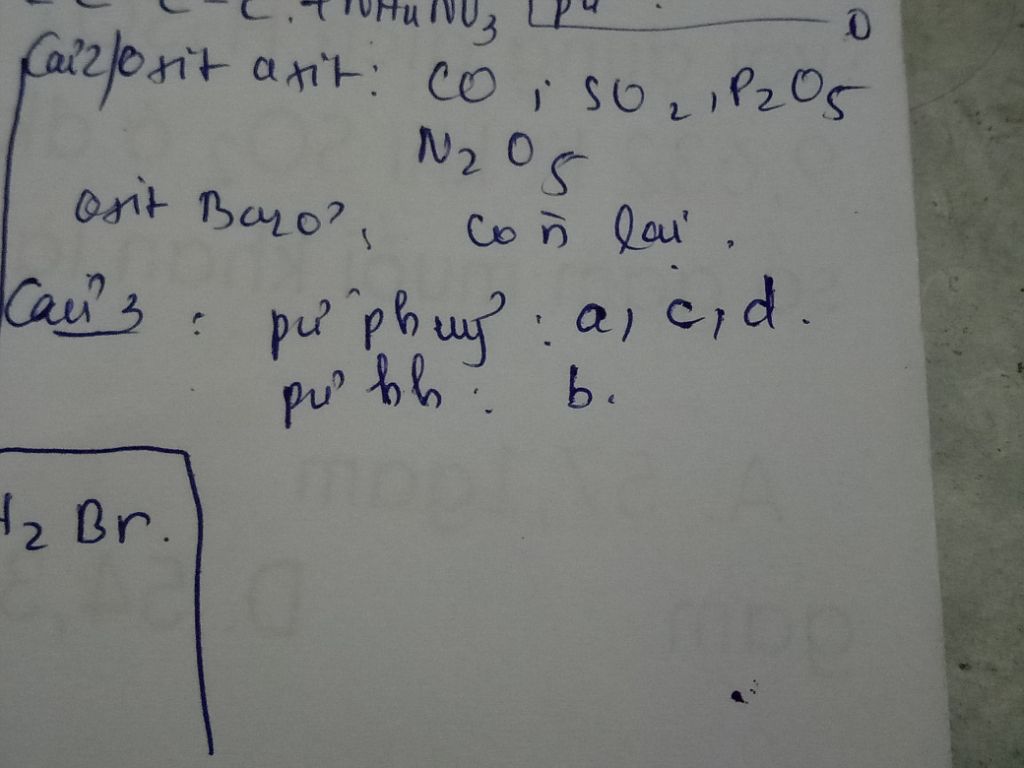 NH₄NO₃
Câu 2/ Oxit axit: CO ; SO₂, P₂O₅
N₂O₅
Oxit Bazơ: còn lại.
Câu 3 : pứ phuỷ : a, c, d.
pứ hh : b.
H₂Br.